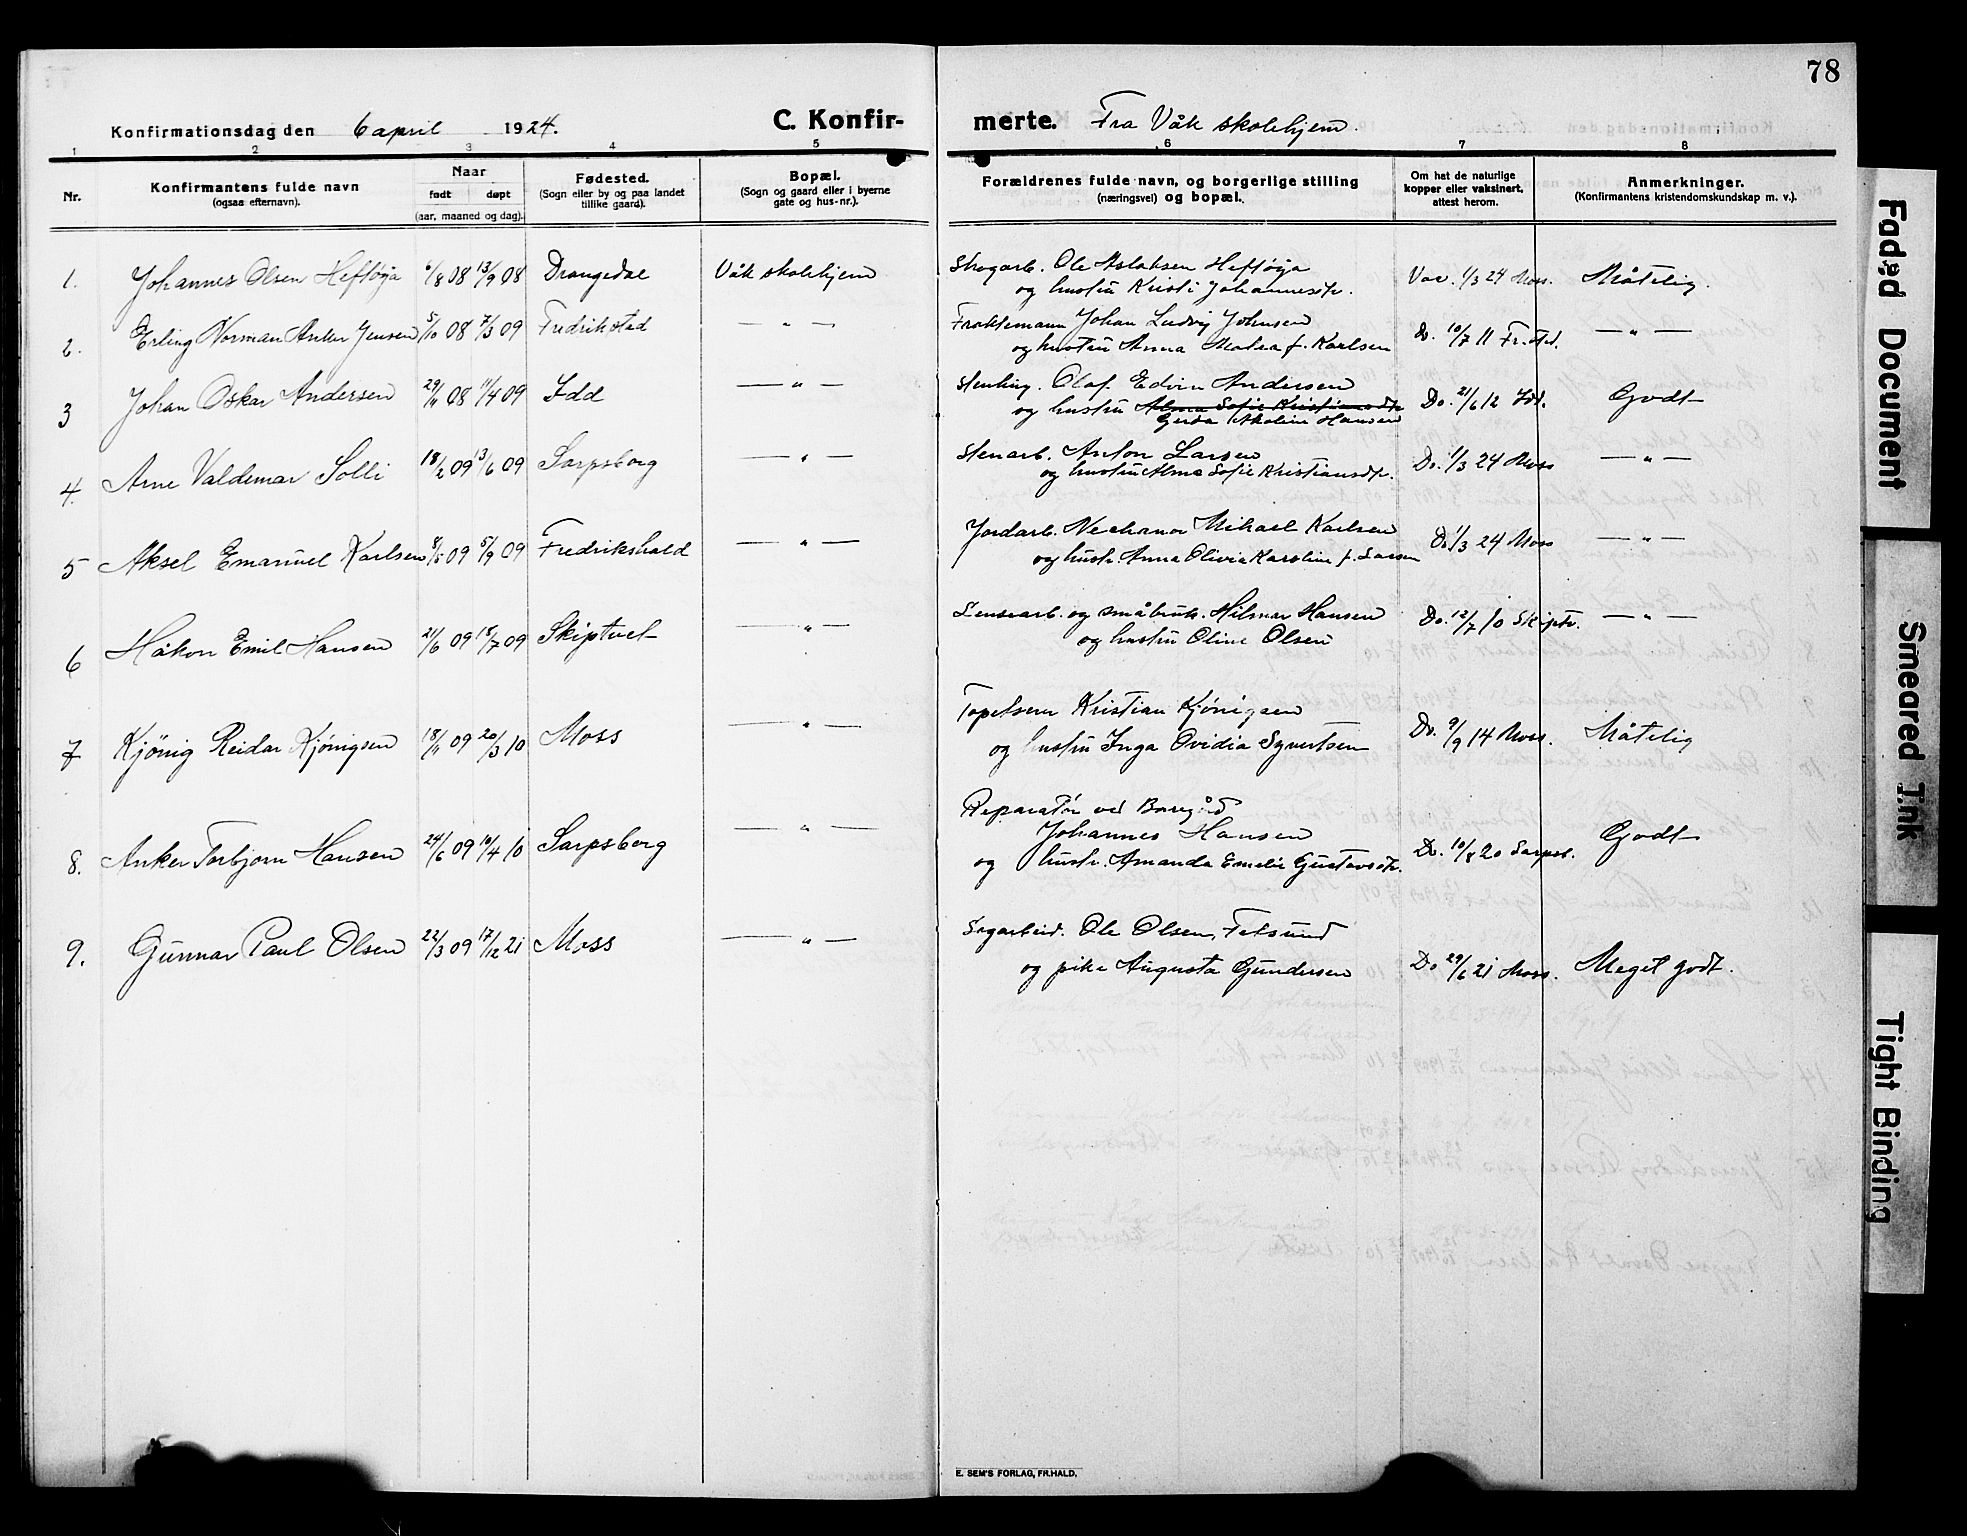 78
Konfirmationsdag den 6 april 1924. C. Konfir-
merte. Fra Våk skolehjem.
1 2 3 4 5 6 7 8
Nr. Konfirmantens fulde navn (ogsaa efternavn). Naar født døpt (aar, maaned og dag). Fødested. (Sogn eller by og paa landet tillike gaard). Bopæl. (Sogn og gaard eller i byerne gate og hus-nr.). Forældrenes fulde navn, og borgerlige stilling (næringsvei) og bopæl. Om hat de naturlige kopper eller vaksinert, attest herom. Anmerkninger. (Konfirmantens kristendomskundskap m. v.).
1. Johannes Olsen Heftøja 6/8 08 13/9 08 Drangedal Våk skolehjem Skogarb. Ole Aslaksen Heftøja Vac. 1/3 24 Moss. Måtelig.
og hustru Kristi Johannesdtr.
2. Erling Norman Anker Jensen 5/10 08 7/3 09 Fredrikstad — " — Fraktemann Johan Ludvig Johnsen Do. 10/7 11 Fr.std. — " —
og hustru Anna Malea f. Karlsen
3 Johan Oskar Andersen 29/11 08 11/4 09 Idd — " — Stenhug. Olaf Edvin Andersen Do. 21/6 12 Idd. Godt
og hustru Alma Sofie Kristiansdtr
Hansen
4. Arne Valdemar Solli 18/2 09 13/6 09 Sarpsborg — " — Stenarb. Anton Larsen Do. 1/3 24 Moss — " —
og hustru Alma Sofie Kristiansdtr.
5 Aksel Emanuel Karlsen 8/5 09 5/9 09 Fredrikshald — " — Jordarb. Mikael Karlsen Do. 1/3 24 Moss — " —
og hustr. Anna Olivia Karoline f. Larsen
6 Håkon Emil Hansen 21/6 09 18/7 09 Skiptvet — " — Lensearb. og småbruk. Hilmar Hansen Do. 12/7 10 Skiptv. — " —
og hustru Oline Olsen
7 Kjönig Reidar Kjönigsen 18/11 09 20/3 10 Moss — " — Tapetserer Kristian Kjönigsen Do. 9/9 14 Moss. Måtelig
og hustru Inga Ovidia Syvertsen
8. Anker Torbjorn Hansen 24/6 09 10/4 10 Sarpsborg — " — Reparatör ved Borregård
Johannes Hansen Do. 10/8 20 Sarpsb. Godt
og hustr. Amanda Emelie Gustavsdtr.
9. Gunnar Paul Olsen 22/3 09 17/12 21 Moss — " — Sagarbeid. Ole Olsen, Fetsund
og pike Augusta Gundersen Do 29/6 21 Moss. Meget godt.
E. SEM'S FORLAG, FR.HALD.
Faded Document
Smeared Ink
Tight Binding